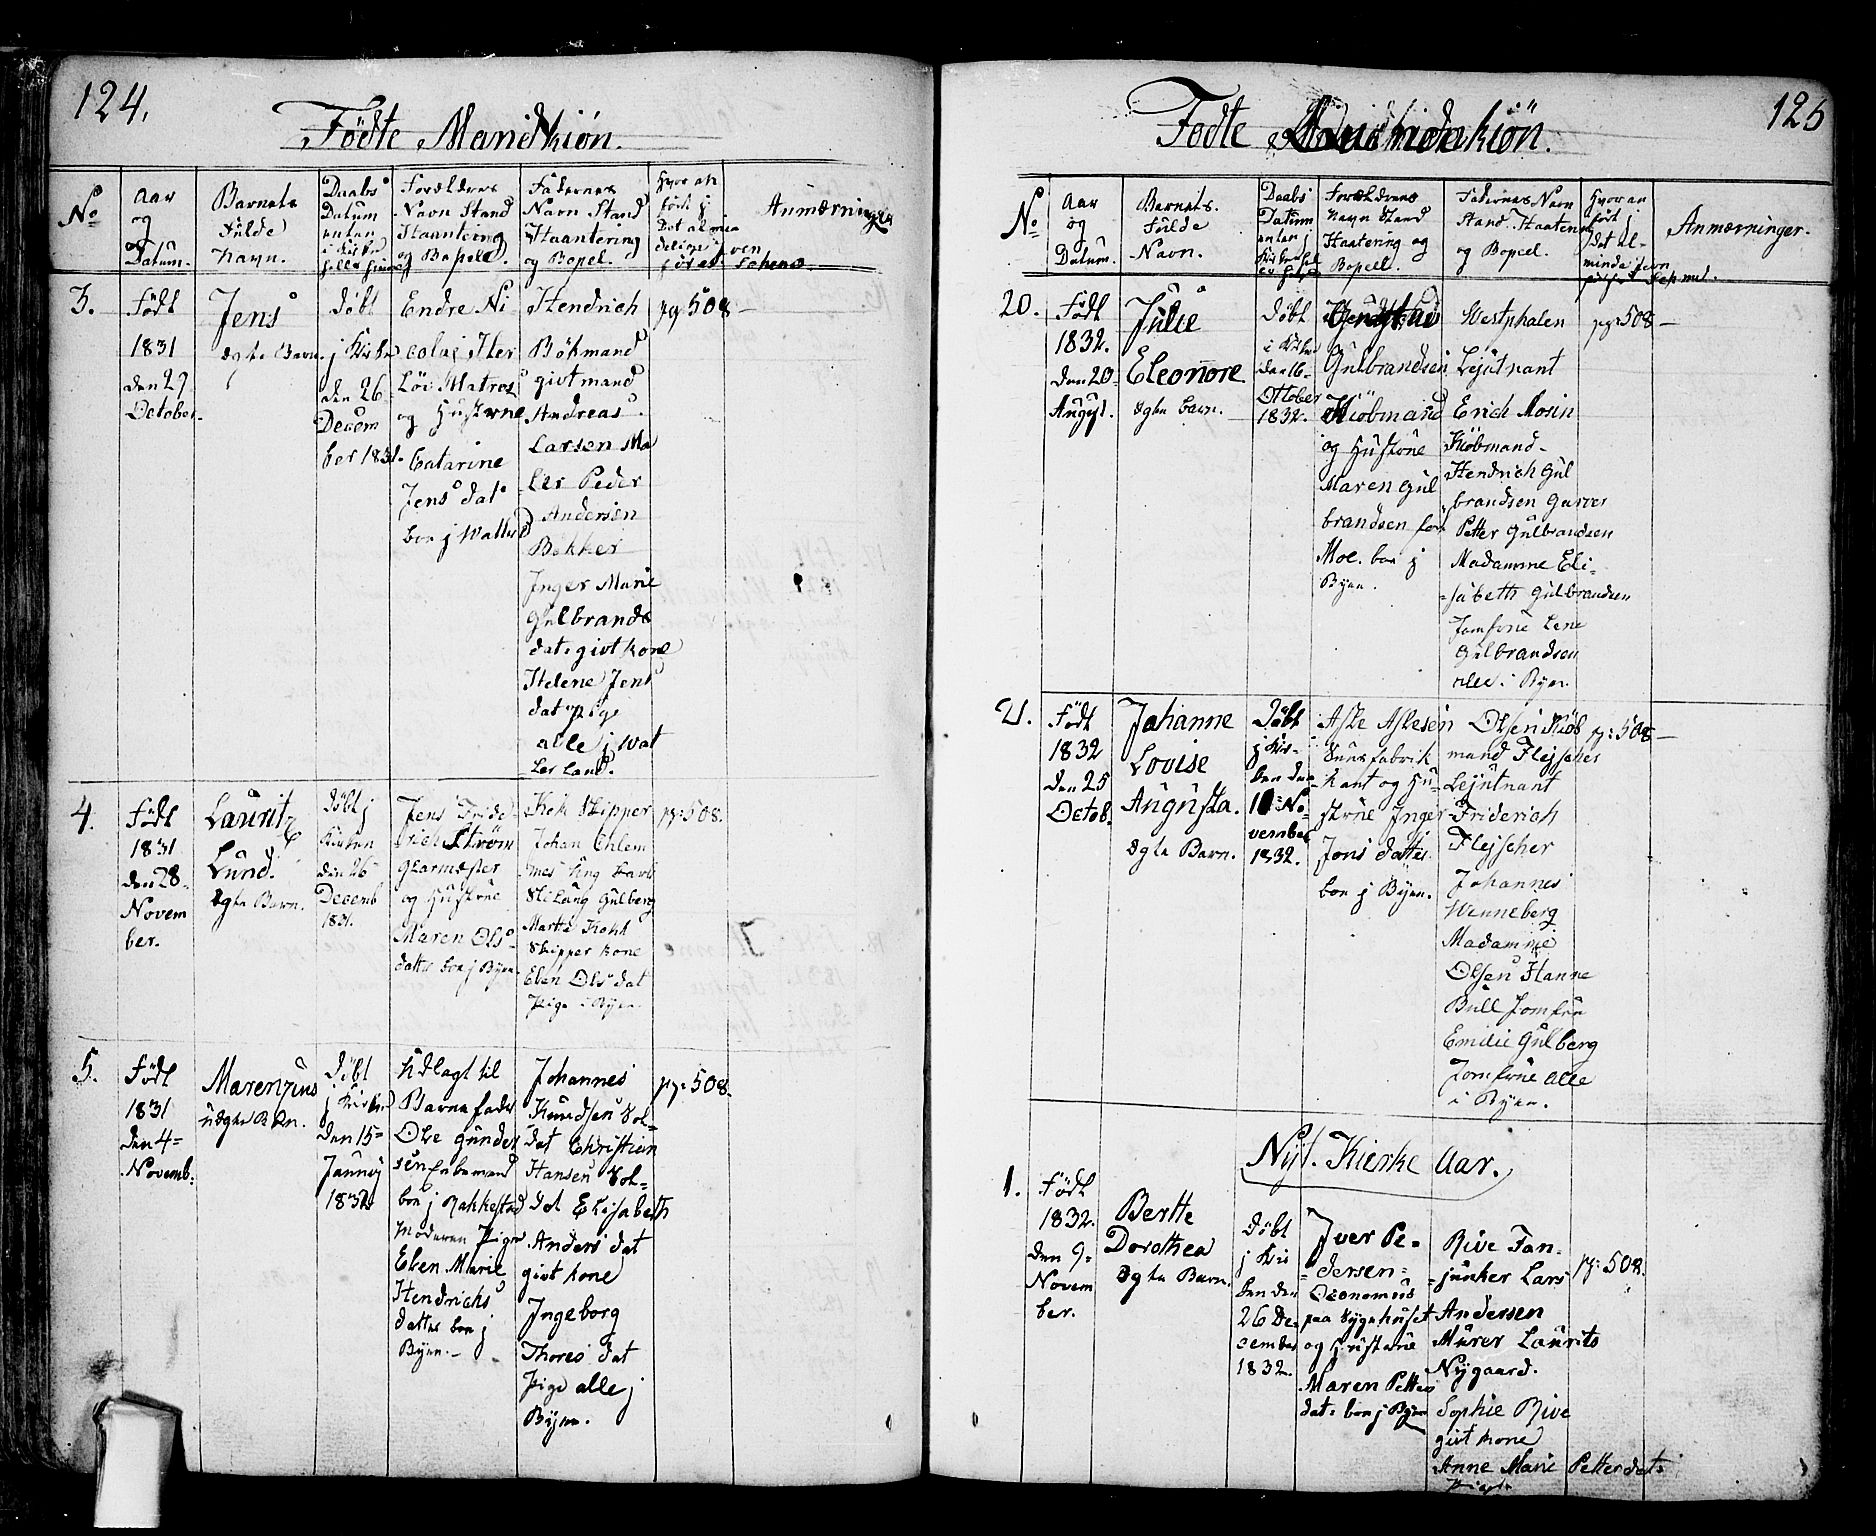 124.
Fødte Mandkiön.
No
Aar
og
Datum.
Barnets
fulde
Navn.
Daabs
Datum
enten
i Kirken
eller hiemme
Forældrenes
Navn Stand
Haantering
og Bopel.
Fadernes
Navn Stand
Haantering
og Bopel.
Hvor an
ført j
Det almin
delige
Anmærninger
3.
Født
1831
den 29
October.
Jens
ægte Barn.
Døbt
j Kirken
den 26
Decem
ber 1831.
Endre Ni
colai Her
Löv Matros
og Hustrue
Catarine
Jens dat
boe j Walle
Hendrich
Bökmand
givt mand
Andreas
Larsen Ma
ler Peder
Andersen
Bekker
Jnger Marie
Gulbrands
dat. givt kone
Helene Jens
dat Pige
alle j Wal
Ler land.
pg 508
4.
Født
1831
den 28.
Novem
ber.
Lauritz
Lund.
ægte Barn.
Døbt j
Kirken
den 26
Decemb
1831.
Jens Fride
rich Strøm
Glarmester
og Hustrue
Maren Ols
datter boe j Byen
Skipper
Johan
Gulberg
Marthe
Skipper kone
Elen Ols dat
Pige i Byen
pg: 508.
5.
Født
1831
den 4
Novemb:
Marenzius
uægte Barn.
Døbt
j Kirken
den 15
Januarj
1832
Udlagt til
Barnefader
Ole Gunder
sen
boe j Rakkestad
Moderen Pige
Elen Marie
Hendrichs
datter boe j
Byen.
Johannes
Knudsen Sol
dat Christian
Hansen Sol
dat Elisabeth
Anders dat
givt kone
Jngeborg
Thores dat
Pige alle j
Byen.
pg: 508.
125
Fødte Quindekiön.
No
Aar
og
Datum.
Barnets.
Fulde
Navn.
Daabs
Datum
enten j
Forældrenes
Navn Stand
Haatering og
Bopell.
Fadernes Navn
Stand Haatering
og Bopeel.
Hvor an
ført j
det al-
minde
Anmærninger.
20.
Født
1832.
den 20
August.
Julie
Eleonore
ægte barn.
Døbt
i Kirken
den 16
October
1832.
Gulbrandsen
Kiöbmand
og Hustrue
Maren Gul
brandsen født
Moe. boe j
Byen.
Westphalen
Lejutnant
Erich Mosin
Kiöbmand
Hendrich Gul
brandsen Garver
Petter Gulbrandsen
Madamme Eli
sabeth Gulbrandsen
Jomfrue Lene
Gulbrandsen
alle i Byen.
pg: 508
21.
Født
1832
den 25
Octob.
Johanne
Lovise
Augusta.
ægte Barn.
Døbt
j Kir-
ken den
No
vember
1832.
Aslesen
fabrik
kant og Hu
strue Jnger
Jons datter
boe j Byen.
Olsen Kiöb
mand Flejscher
Lejutnant
Friderich
Flejscher
Johannes
Wenneberg
Madamme
Olsen Hanne
Bull Jomfru
Emilie Gulberg
Jomfrue alle
i Byen.
pg: 508
Nyt. Kierke Aar.
1.
Født
1832.
den 9
Novem
ber.
Berthe
Dorothea
ægte Barn.
Døbt
j Kir
ken den
26 De
cember
1832.
Jver Pe
dersen
Øconomus
paa Sygehuset
og Hustrue
Maren Petters
dat. boe j Byen
Rive Fan
junker Lars
Andersen
Murer Laurits
Nygaard.
Sophie Rive
givt kone
Anne Marie Petterdat:
Pige
pg: 508.